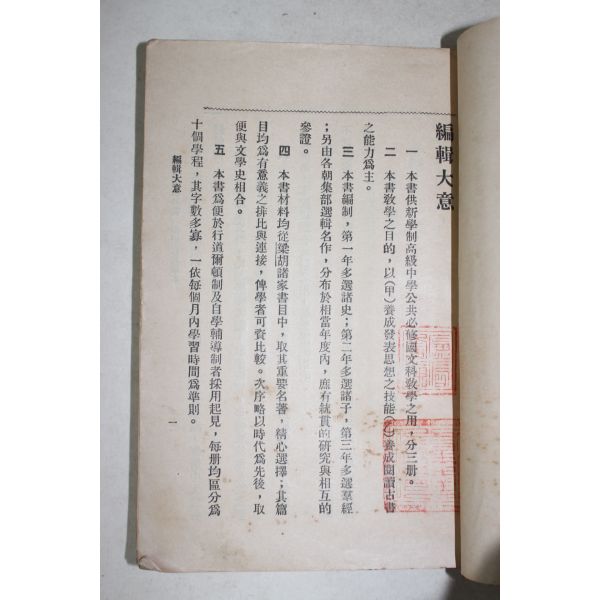 編輯大意
一　本書供新學制高級中學公共必修國文科教學之用，分三册。
二　本書教學之目的，以(甲)養成發表思想之技能(乙)養成閱讀古書
之能力爲主。
三　本書編制，第一年多選諸史；第二年多選諸子，第三年多選羣經
；另由各朝集部選輯名作，分布於相當年度內，庶有統貫的研究與相互的
參證。
四　本書材料均從梁胡諸家書目中，取其重要名著，精心選擇；其篇
目均爲有意義之排比與連接，俾學者可資比較。次序略以時代爲先後，取
便與文學史相合。
五　本書爲便於行道爾頓制及自學輔導制者採用起見，每册均區分爲
十個學程，其字數多寡，一依每個月內學習時間爲準則。
編輯大意
一